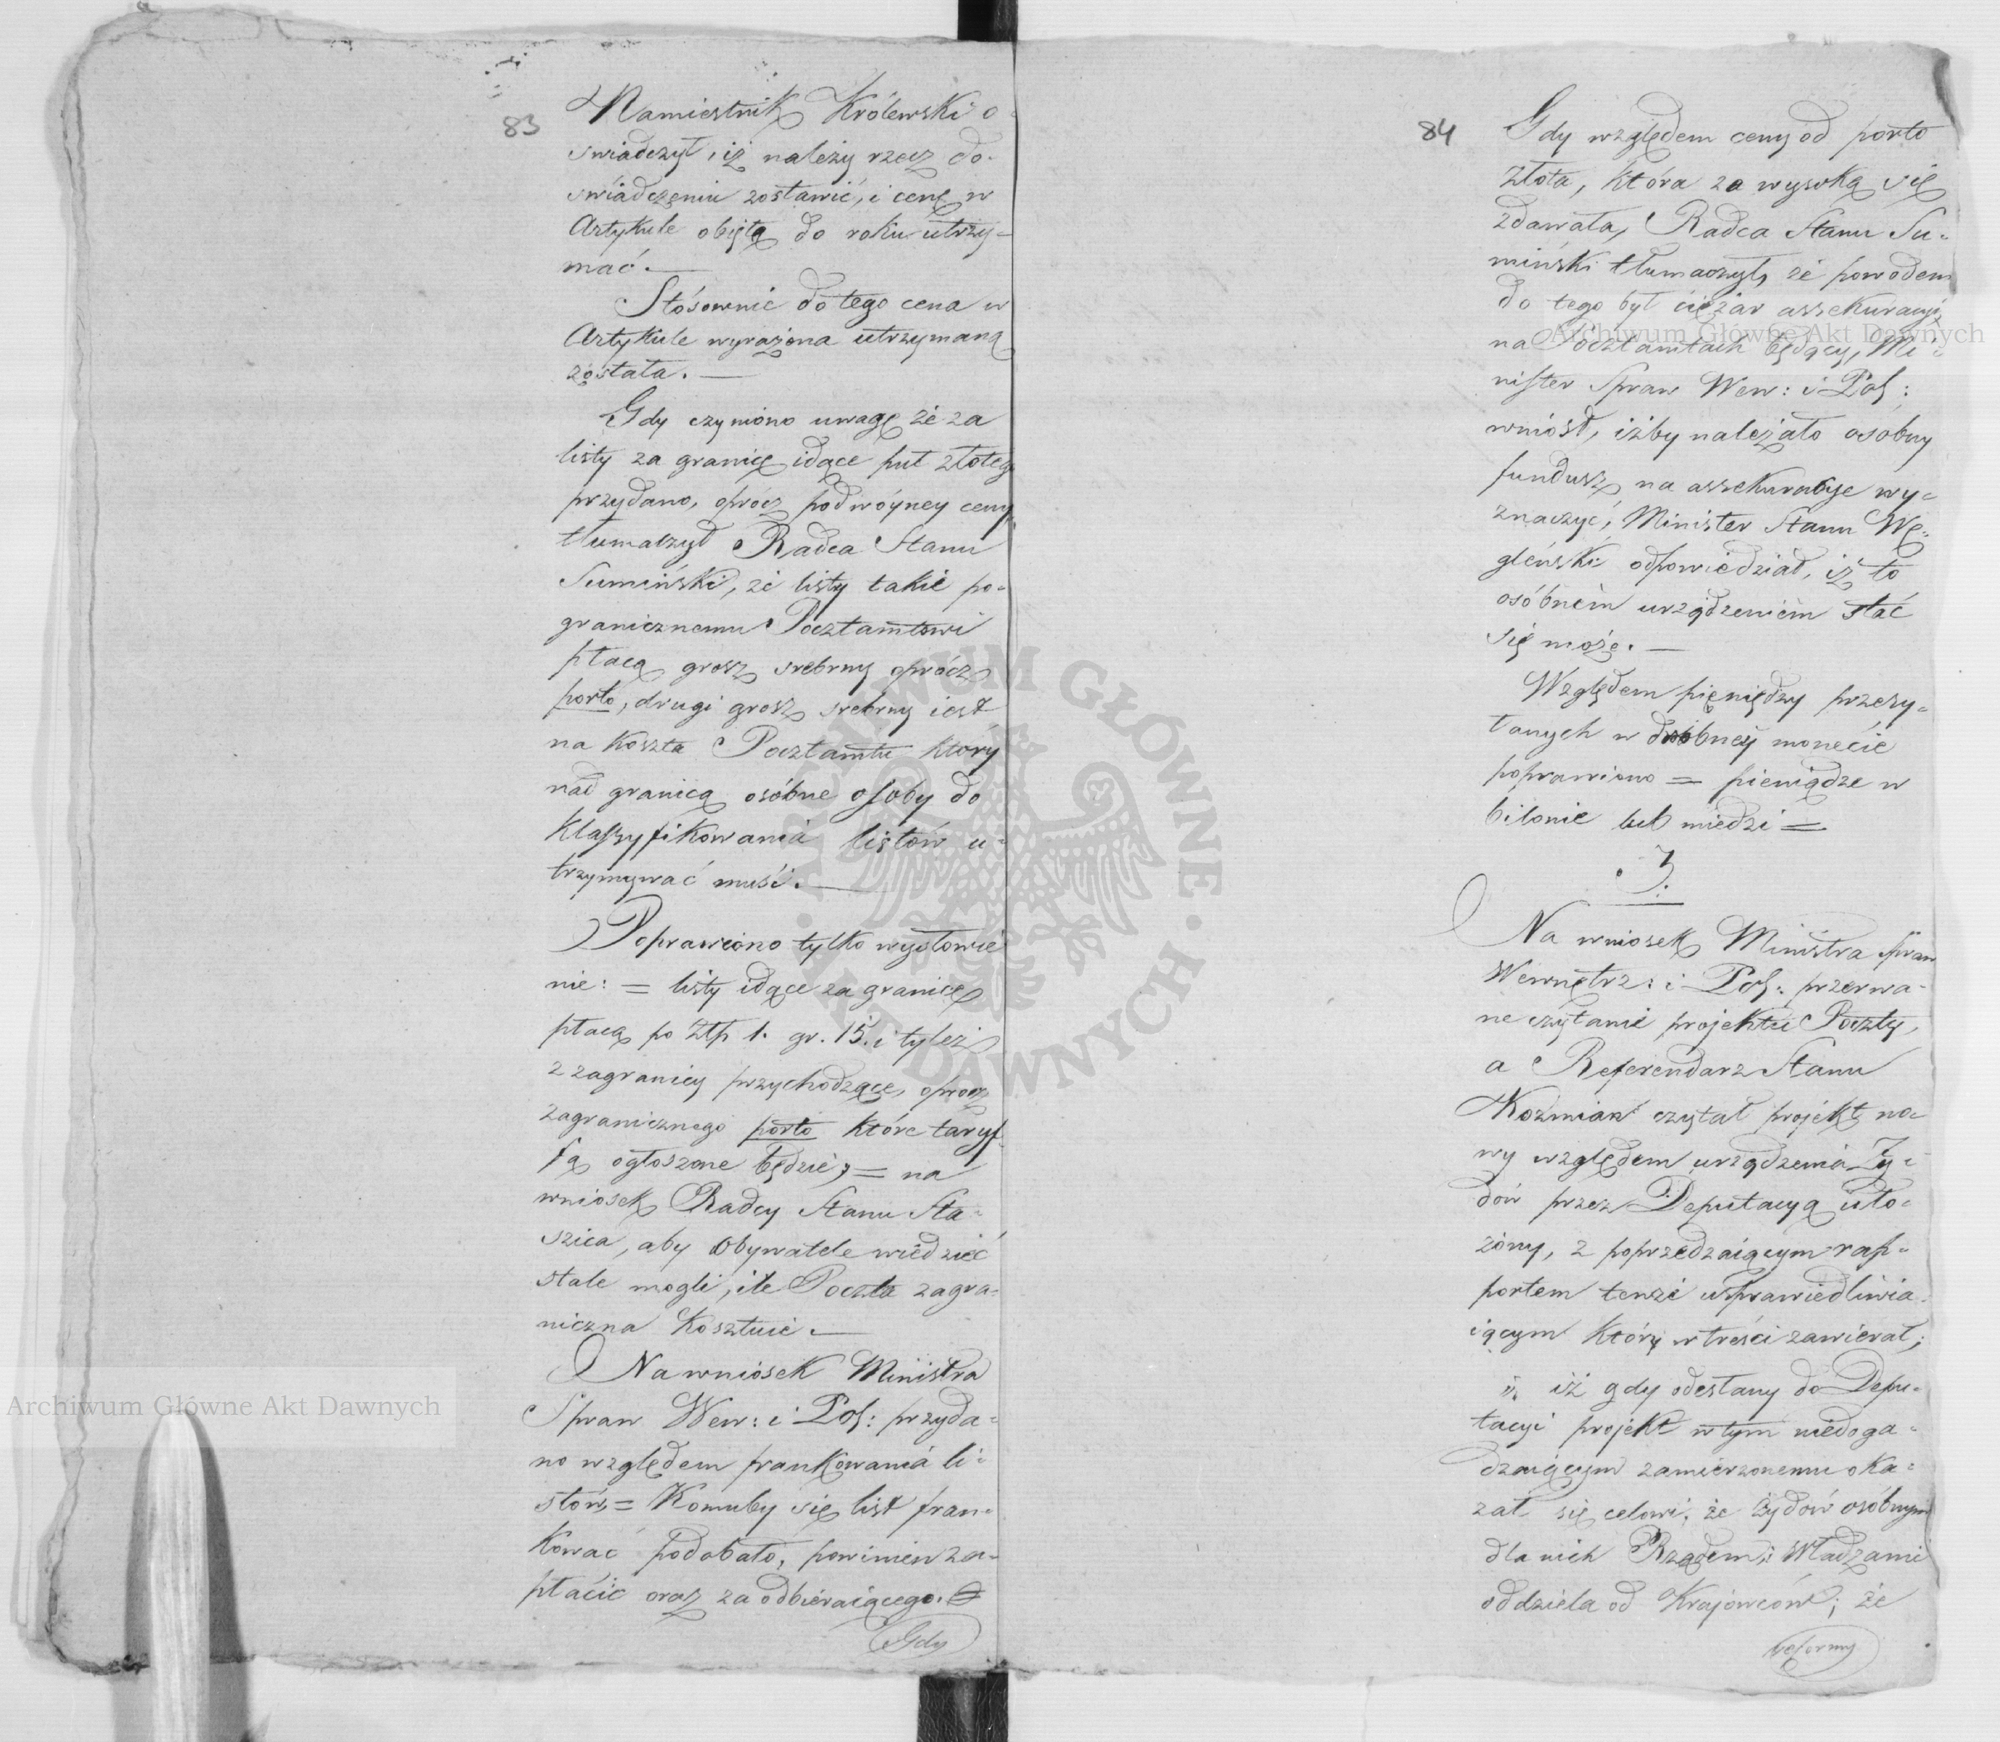 83
Namiestnik Królewski o-
świadczył, iż należy rzecz do-
świadczeniu zostawić, i cenę w
Artykule objętą do roku utrzy-
mać. —
Stósownie do tego cena w
Artykule wyrażona utrzymaną
została. —
Gdy czyniono uwagę że za
listy za granicę idące puł złotego
przydano, oprócz podwóyney ceny
tłumaczył Radca Stanu
Sumiński, że listy takie po-
granicznemu Pocztamtowi
płacą grosz srebrny oprócz
porto, drugi grosz srebrny iest
na koszta Pocztamtu który
nad granicą osóbne osoby do
klassyfikowania listów u-
trzymywać musi. —
Poprawiono tylko wysłowie
nie: = listy idące za granicę
płacą po Złp 1. gr. 15. i tyleż
z zagranicy przychodzące, oprócz
zagranicznego porto które taryf-
fą ogłoszone będzie, = na
wniosek Radcy Stanu Sta-
szica, aby Obywatele wiedzieć
stale mogli, ile Poczta zagra-
niczna kosztuie. —
Na wniosek Ministra
Spraw Wew: i Pol: przyda-
no względem frankowania li-
stów, = Komuby się list fran-
kować podobało, powinien za-
płacić oraz za odbieraiącego. =
Gdy
84
Gdy względem ceny od porto
złota, która za wysoką się
zdawała, Radca Stanu Su-
miński tłumaczył, że powodem
do tego był ciężar assekuracyi
na Pocztamtach będący, Mi-
nister Spraw Wew: i Pol:
wniósł, iżby należało osobny
fundusz na assekuracye wy-
znaczyć, Minister Stanu Wę-
gleński odpowiedział, iż to
osóbném urządzeniem stać
się może. —
Względem pieniędzy przesy-
łanych w drobney monecie
poprawiono = pieniądze w
bilonie lub miedzi =
3.
Na wniosek Ministra Spraw
Wewnętrz: i Pol: przerwa-
ne czytanie projektu Poczty,
a Referendarz Stanu
Koźmian czytał projekt no-
wy względem urządzenia Ży-
dów przez Deputacyą uło-
żony, z poprzedzaiącym rap-
portem tenże usprawiedliwia-
iącym który w treści zawierał;
iż gdy odesłany do Depu-
tacyi projekt w tym niedoga-
dzaiącym zamierzonemu oka-
zał się celowi; że żydów osóbnym
dla nich Rządem i Władzami
oddziela od Kraiowców; że
reformy
Archiwum Główne Akt Dawnych
Archiwum Główne Akt Dawnych
ARCHIWUM GŁÓWNE · AKT DAWNYCH ·